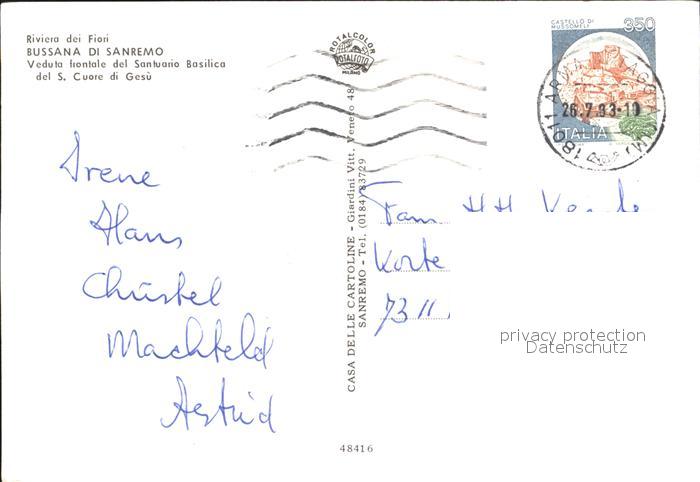 Riviera dei Fiori
BUSSANA DI SANREMO
Veduta frontale del Santuario Basilica
del S. Cuore di Gesù
ROTALCOLOR
ROTALFOTO
MILANO
CASTELLO DI
MUSSOMELI
350
ITALIA
26.7.93-10
18011 ARMA
Irene
Hans
Christel
Machteld
Astrid
CASA DELLE CARTOLINE - Giardini Vitt. Veneto 48
SANREMO - Tel. (0184) 83729
Fam H H
Korte
7311
privacy protection
Datenschutz
48416